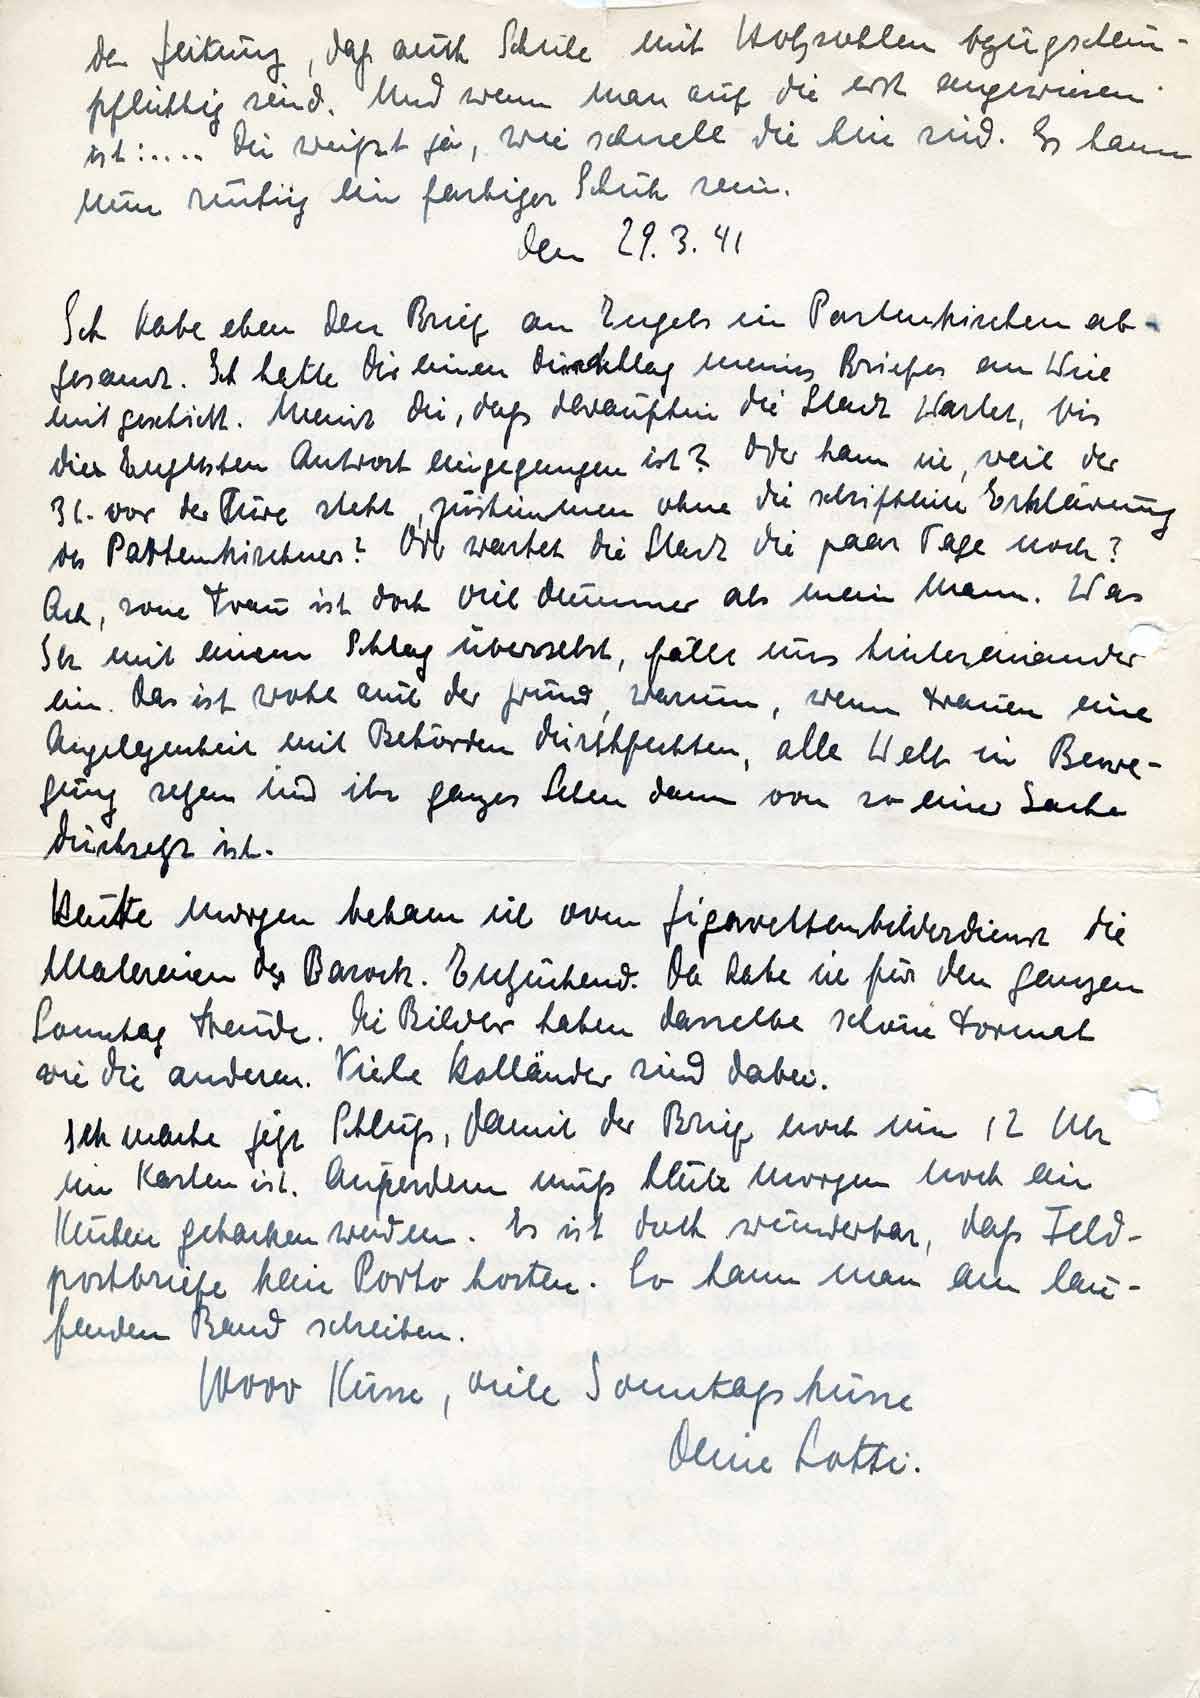 der Zeitung, daß auch Schuhe mit Holzsohlen bezugschein-
pflichtig sind. Und wenn man auf die erst angewiesen
ist:.... Du weißt ja, wie schnell die hin sind. Es kann
nun ruhig ein farbiger Schuh sein.
den 29.3.41
Ich habe eben den Brief an Engels in Partenkirchen ab-
gesandt. Ich hatte Dir einen Durchschlag meines Briefes an
mitgeschickt. Meinst Du, daß daraufhin die Stadt wartet, bis
die Antwort eingegangen ist? Oder kann sie, weil der
31. vor der Türe steht, zustimmen ohne die schriftliche Erklärung
des Partenkirchners? Oder wartet die Stadt die paar Tage noch?
Ach, sone Frau ist doch viel dümmer als mein Mann. Was
Ihr mit einem Schlag überseht, fällt uns hintereinander
ein. Das ist wohl auch der Grund, warum, wenn Frauen eine
Angelegenheit mit Behörden durchfechten, alle Welt in Bewe-
gung setzen und ihr ganzes Leben dann von so einer Sache
durchsetzt ist.
Heute morgen bekam ich vom Zigarettenbilderdienst die
Malereien des Barock. Entzückend. Da habe ich für den ganzen
Sonntag Freude. Die Bilder haben dasselbe schöne Format
wie die anderen. Viele Holländer sind dabei.
Ich mache jetzt Schluß, damit der Brief noch um 12 Uhr
im Kasten ist. Außerdem muß heute morgen noch ein
Kuchen gebacken werden. Es ist doch wunderbar, daß Feld-
postbriefe kein Porto kosten. So kann man am lau-
fenden Band schreiben.
10000 Küsse, viele Sonntagsküsse
Deine Lotti.